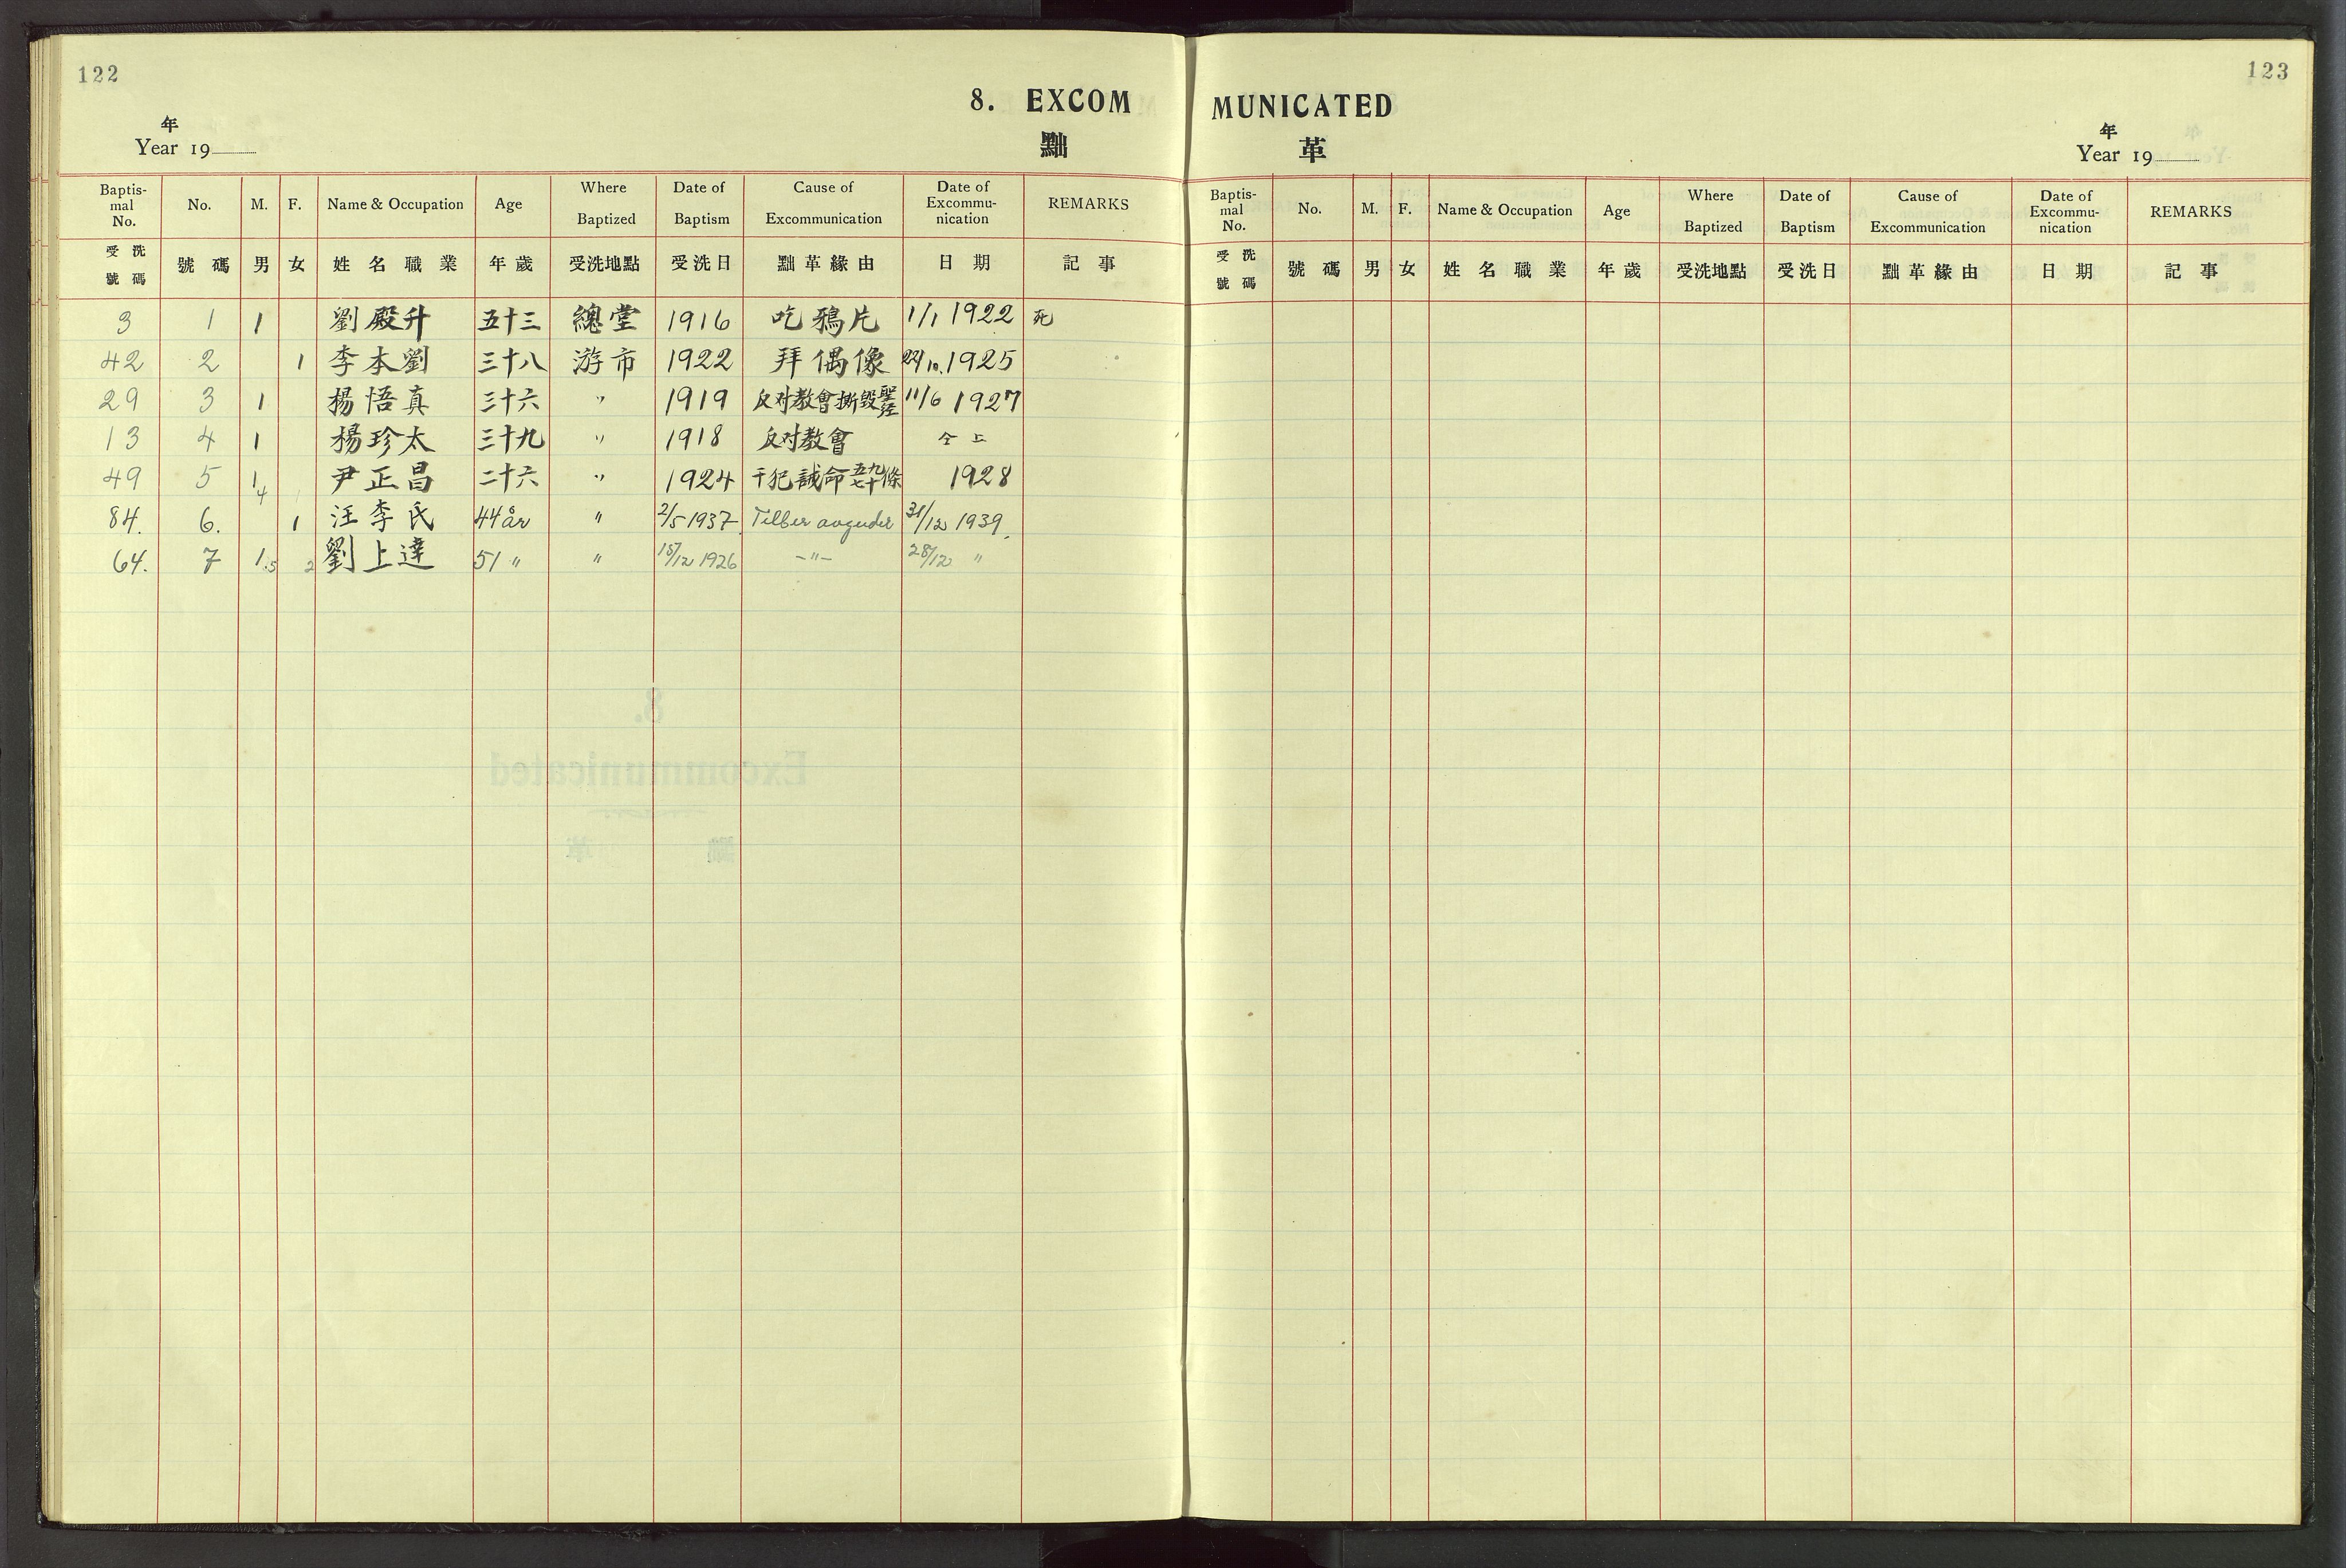 122
8. EXCOM
黜
年
Year 19
Baptismal No. No. M. F. Name & Occupation Age Where Baptized Date of Baptism Cause of Excommunication Date of Excommunication REMARKS
受洗號碼 號碼 男 女 姓名職業 年歲 受洗地點 受洗日 黜革緣由 日期 記事
3 1 1 劉殿升 五十三 總堂 1916 吃鴉片 1/1 1922 死
42 2 1 李本劉 三十八 游市 1922 拜偶像 22/10. 1925
29 3 1 楊悟真 三十六 〃 1919 反对教會撕毀聖经 11/6 1927
13 4 1 楊珍太 三十九 〃 1918 反对教會 仝上
49 5 1 4 尹正昌 二十六 〃 1924 干犯誡命五七九十條 1928
84. 6. 1 汪李氏 44 år 〃 2/5 1937 Tilber avguder 31/12 1939.
64. 7 1.5 2 劉上達 51 〃 〃 15/12 1926 -〃- 28/12 〃
123
MUNICATED
革
年
Year 19
Baptismal No. No. M. F. Name & Occupation Age Where Baptized Date of Baptism Cause of Excommunication Date of Excommunication REMARKS
受洗號碼 號碼 男 女 姓名職業 年歲 受洗地點 受洗日 黜革緣由 日期 記事